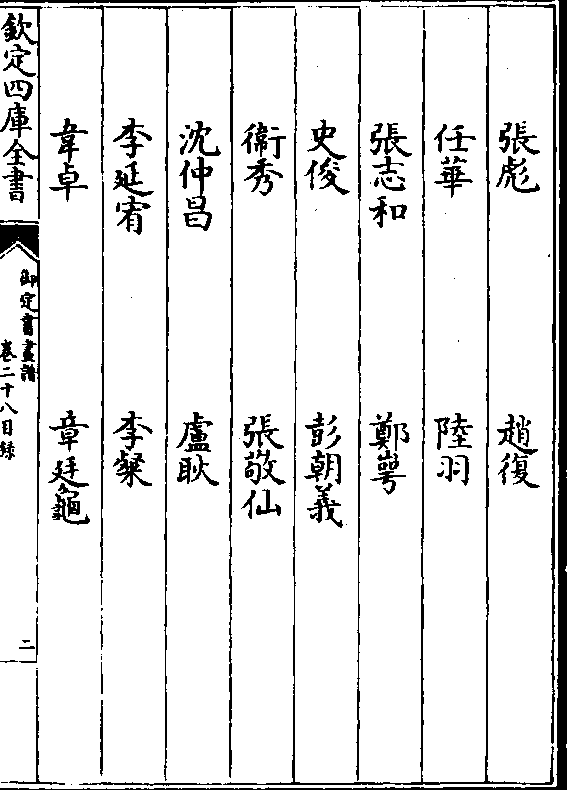 張彪 趙復
任華 陸羽
張志和 鄭萼
史俊 彭朝義
衞秀 張敬仙
沈仲昌 盧耿
李延宥 李粲
韋卓 章廷龜
欽定四庫全書
御定書畫譜
卷二十八目錄
二